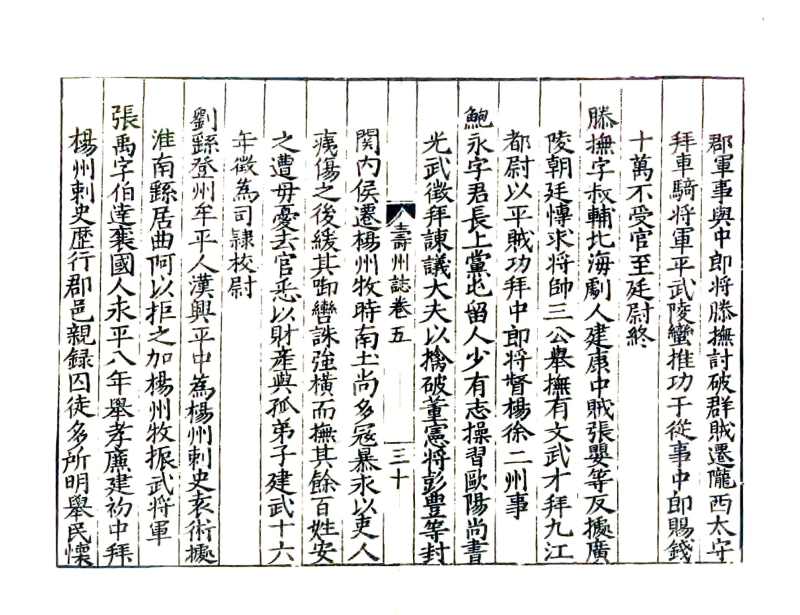 郡軍事與中郎將滕撫討破群賊遷隴西太守
拜車騎將軍平武陵蠻推功于從事中郎賜錢
十萬不受官至廷尉終
滕撫字叔輔北海劇人建康中賊張嬰等反攄廣
陵朝廷慱求將帥三公舉撫有文武才拜九江
都尉以平賊功拜中郎將督楊徐二州事
鮑永字君長上黨屯留人少有志操習歐陽尚書
光武徵拜諫議大夫以擒破董憲將彭豐等封
壽州誌卷五
三十
関内侯遷楊州牧時南土尚多冦暴永以吏人
痍傷之後緩其啣轡誅強橫而撫其餘百姓安
之遭毋憂去官悉以財産與孤弟子建武十六
年徵爲司隷校尉
劉繇登州牟平人漢興平中爲楊州刺史袁術攄
淮南繇居曲阿以拒之加楊州牧振武將軍
張禹字伯達襄國人永平八年舉孝廉建初中拜
楊州刺史歷行郡邑親録囚徒多所明舉民懷